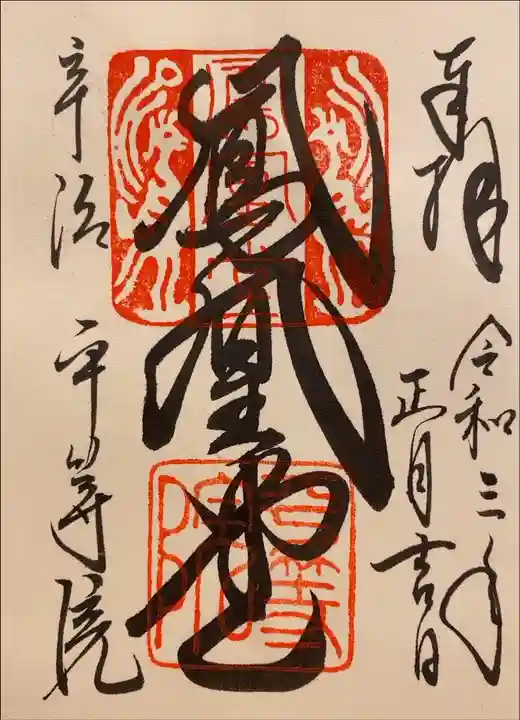 奉拝
令和三年
正月吉日
鳳凰堂
宇治 平等院
平等院印